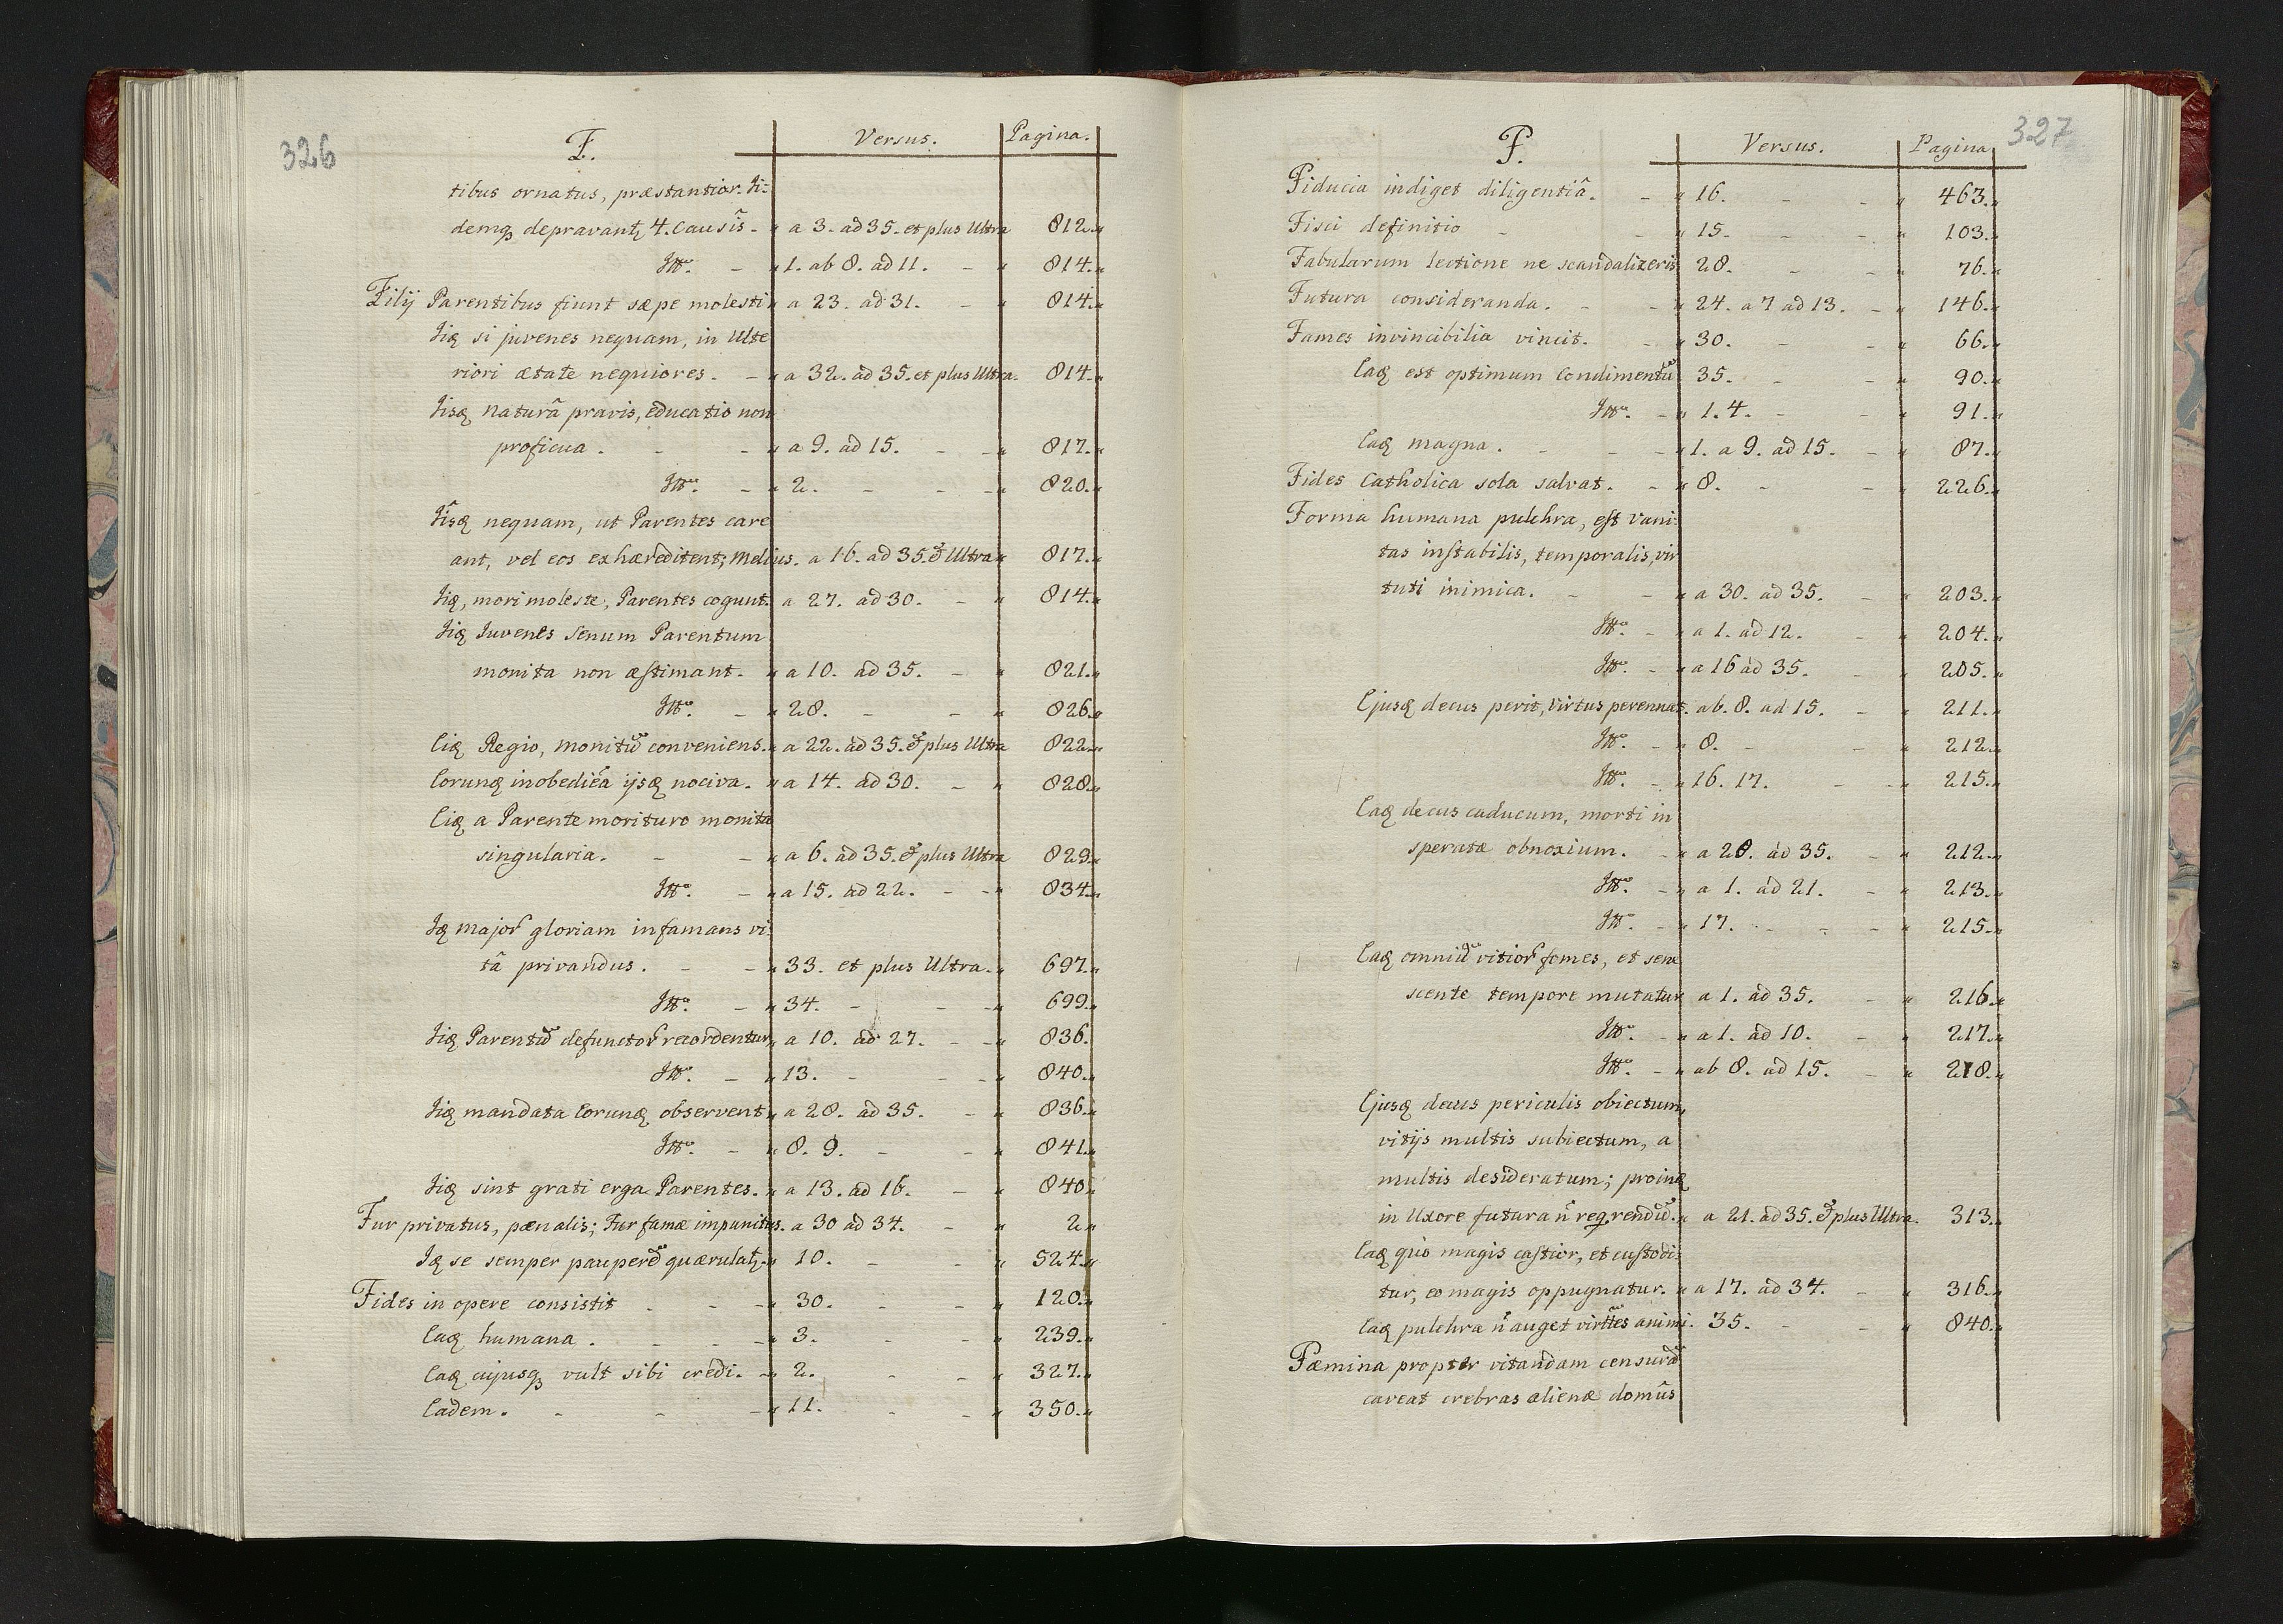 326
F. Versus. Pagina.
tibus ornatus, præstantior. Ii-
demq depravant 4. Causis. - a 3. ad 35. et plus Ultra 812.
Itt. - 1. ab 8. ad 11. - 814.
Filij Parentibus fiunt sæpe molesti a 23. ad 31. - 814.
Iiq si juvenes nequam, in Ulte
riori ætate nequiores. - a 32. ad 35. et plus Ultra. 814.
Iisq naturâ pravis, educatio non
proficua. - - a 9. ad 15. - - 817.
Itt. - 2. - - - 820.
Iisq nequam, ut Parentes care
ant, vel eos exhæreditent; Melius. a 16. ad 35. & Ultra 817.
Iiq, mori moleste, Parentes cogunt. a 27. ad 30. - 814.
Iiq Iuvenes Senum Parentum
monita non æstimant. a 10. ad 35. - 821.
Itt. - 28. - - 826.
Eiq Regio, monitũ conveniens. a 22. ad 35. & plus Ultra 822.
Eorunq inobediẽa ijsq nociva. a 14. ad 30. - 828.
Eiq a Parente morituro monita
singularia. - - a 6. ad 35. & plus Ultra 829.
Itt. - a 15. ad 22. - - 834.
Iq major gloriam infamans vi-
tâ privandus. - - 33. et plus Ultra. 697.
Itt. - 34. - - - 699.
Iiq Parentũ defunctor recordentur, a 10. ad 27. - - 836.
Itt. - 13. - - - 840.
Iiq mandata Eorunq observent a 28. ad 35. - 836.
Itt. - 8. 9. - - 841.
Iiq sint grati erga Parentes. a 13. ad 16. - 840
Fur privatus, pænalis; Fur famæ impunitus. a 30 ad 34. - 2
Iq se semper pauperẽ quærulat. 10. - - 524.
Fides in opere consistit - - - 30. - - 120.
Eaq humana. - - - 3. - - 239.
Eaq cujusq vult sibi credi. - 2. - - 327.
Eadem. - - - 11. - - 350.
327
F. Versus. Pagina
Fiducia indiget diligentiâ. - 16. - - 463.
Fisci definitio - - 15. - - 103.
Fabularum lectione ne scandalizeris 28. - - 76.
Futura consideranda. - - 24. a 7 ad 13. - 146.
Fames invincibilia vincit. - 30. - - 66.
Eaq est optimum Condimentũ 35. - - 90.
Itt. - 1. 4. - - 91.
Eaq magna. - - - 1. a 9. ad 15. - 87.
Fides Catholica sola salvat. - 8. - - 226.
Forma humana pulchra, est Vani-
tas instabilis, temporalis, vir
tuti inimica. - - a 30. ad 35. - 203.
Itt. - a 1. ad 12. - 204.
Itt. - a 16 ad 35. - 205.
Ejusq decus perit, Virtus perennat. ab. 8. ad 15. - 211.
Itt. - 8. - - 212.
Itt. - 16. 17. - - 215.
Eaq decus caducum, morti in
speratæ obnoxium. - a 28. ad 35. - 212.
Itt. - a 1. ad 21. - 213.
Itt. - 17. - - - 215.
Eaq omniũ vitior fomes, et sene
scente tempore mutatur a 1. ad 35. - 216.
Itt. - a 1. ad 10. - 217.
Itt. - ab 8. ad 15. - 218.
Ejusq decus periculis obiectum,
vitijs multis subiectum, a
multis desideratum; proinq
in Uxore futura ñ reqrendũ. a 21. ad 35. & plus Ultra. 313.
Eaq quò magis castior, et custodi-
tur, eo magis oppugnatur. a 17. ad 34. - 316.
Eaq pulchra ñ auget virttes animi. 35. - - 840.
Fæmina propter vitandam censurã
careat crebras alienæ domûs